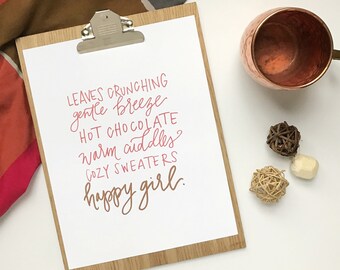 LEAVES CRUNCHING
gentle breeze
HOT CHOCOLATE
warm cuddles
COZY SWEATERS
happy girl.